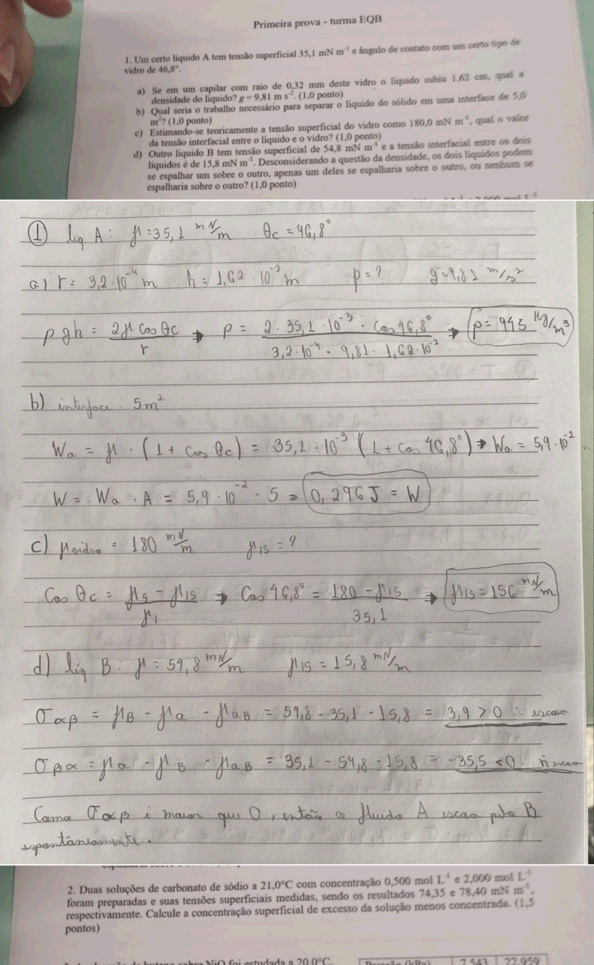 Primeira prova - turma EQB
1. Um certo líquido A tem tensão superficial 35,1 mN m⁻¹ e ângulo de contato com um certo tipo de
vidro de 46,8°.
a) Se em um capilar com raio de 0,32 mm deste vidro o líquido subiu 1,62 cm, qual a
densidade do líquido? g = 9,81 m s⁻². (1,0 ponto)
b) Qual seria o trabalho necessário para separar o líquido do sólido em uma interface de 5,0
m²? (1,0 ponto)
c) Estimando-se teoricamente a tensão superficial do vidro como 180,0 mN m⁻¹, qual o valor
da tensão interfacial entre o líquido e o vidro? (1,0 ponto)
d) Outro líquido B tem tensão superficial de 54,8 mN m⁻¹ e a tensão interfacial entre os dois
líquidos é de 15,8 mN m⁻¹. Desconsiderando a questão da densidade, os dois líquidos podem
se espalhar um sobre o outro, apenas um deles se espalharia sobre o outro, ou nenhum se
espalharia sobre o outro? (1,0 ponto)
① liq A: γ = 35,1 mN/m θc = 46,8°
a) r = 3,2·10⁻⁴ m h = 1,62·10⁻² m ρ = ? g = 9,81 m/s²
ρgh = 2γ cos θc / r → ρ = 2·35,1·10⁻³·cos 46,8° / 3,2·10⁻⁴·9,81·1,62·10⁻² → ρ = 945 Kg/m³
b) interface 5m²
Wa = γ·(1 + cos θc) = 35,1·10⁻³ (1 + cos 46,8°) → Wa = 5,9·10⁻²
W = Wa · A = 5,9·10⁻² · 5 = 0,296 J = W
c) γvidro = 180 mN/m γls = ?
Cos θc = γs - γls / γl → Cos 46,8° = 180 - γls / 35,1 → γls = 156 mN/m
d) liq B: γ = 54,8 mN/m γls = 15,8 mN/m
σαβ = γB - γa - γaB = 54,8 - 35,1 - 15,8 = 3,9 > 0 ∴ escoa
σβα = γa - γB - γaB = 35,1 - 54,8 - 15,8 = -35,5 < 0 ∴ ñ escoa
Como σαβ é maior que 0, então o fluido A escoa pelo B
espontaneamente.
2. Duas soluções de carbonato de sódio a 21,0°C com concentração 0,500 mol L⁻¹ e 2,000 mol L⁻¹
foram preparadas e suas tensões superficiais medidas, sendo os resultados 74,35 e 78,40 mN m⁻¹,
respectivamente. Calcule a concentração superficial de excesso da solução menos concentrada. (1,5
pontos)
sobre NiO foi estudada a 20,0°C. 7,543 22,959